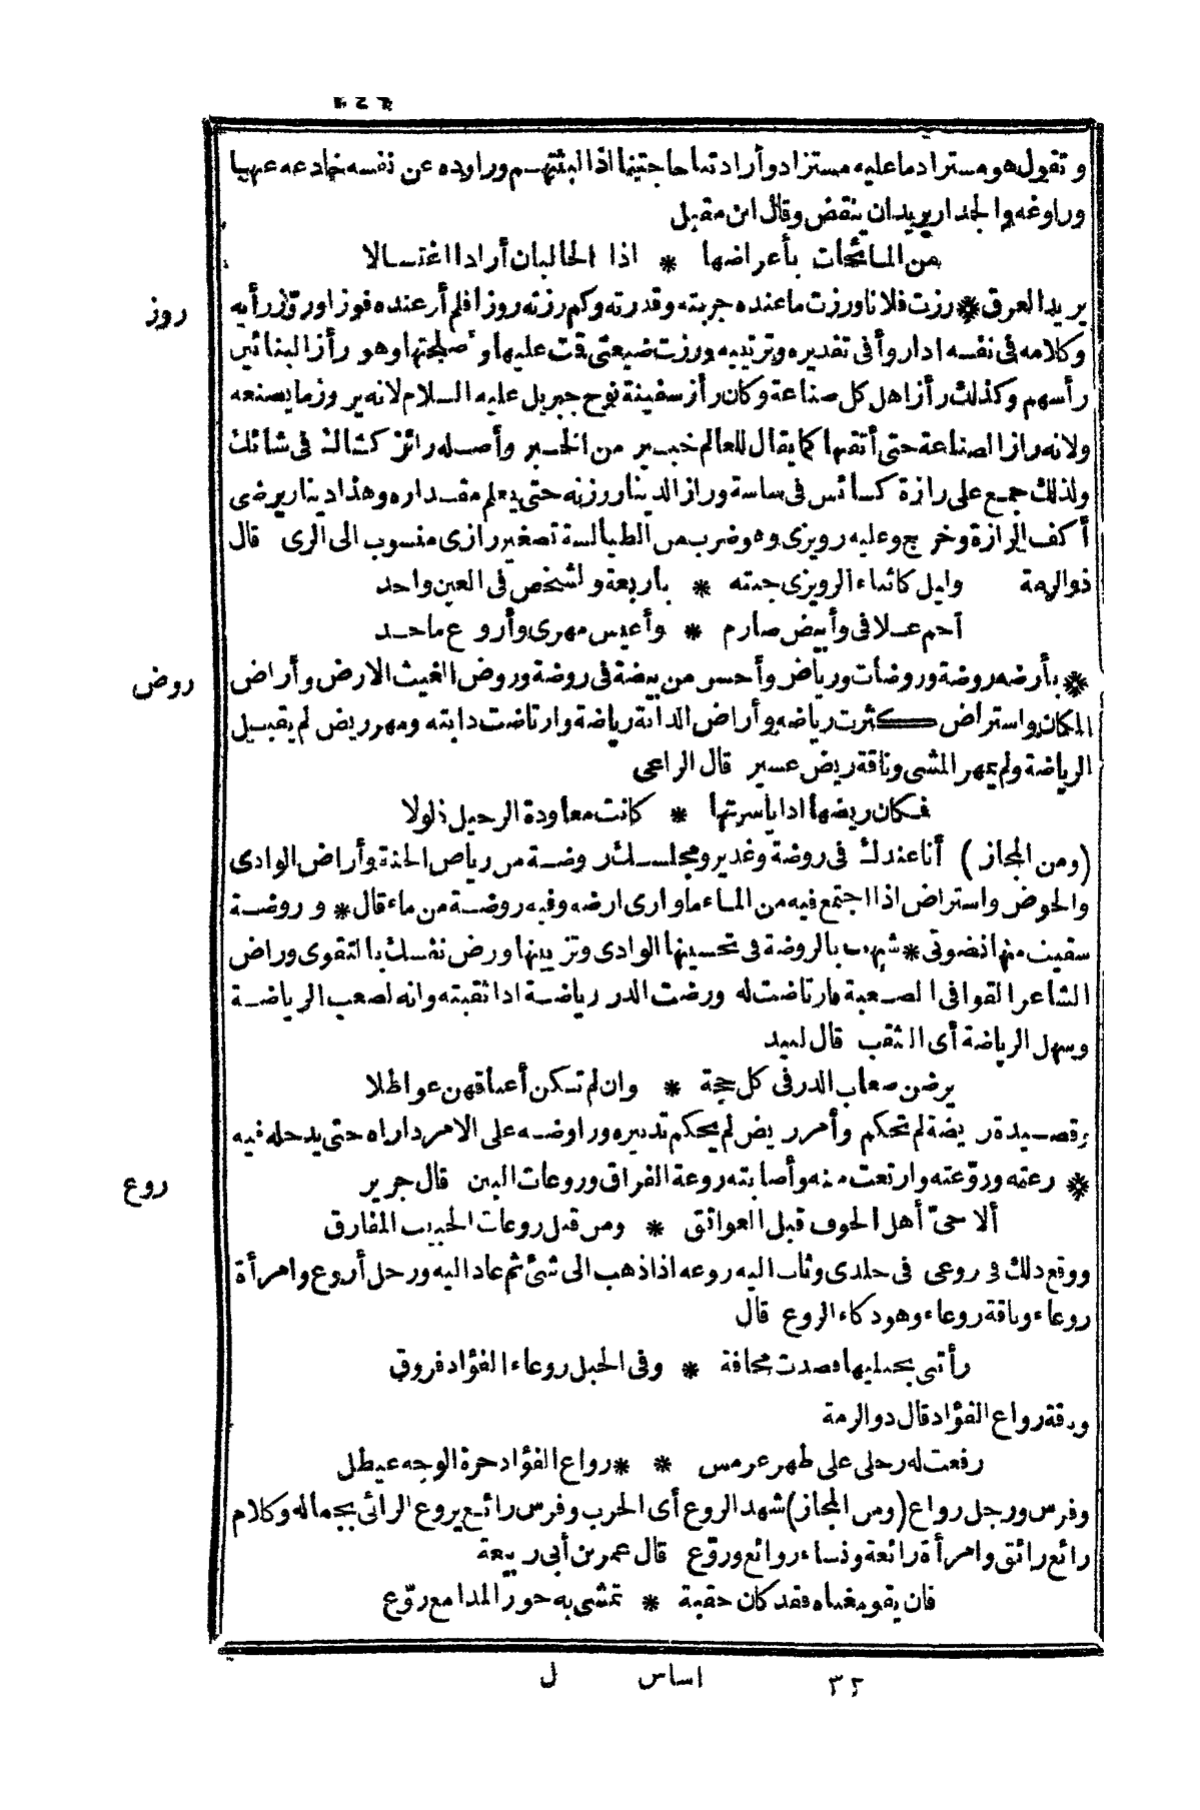 وتقول هو مستراد ما عليه مستزاد وأرادتنا حاجتنا اذا لبثتهم وراوده عن نفسه خادعه عنها
وراوغه والجدار يريد ان ينقض وقال ابن مقبل
من المائحات بأعراضها * اذا الحالبان أرادا اغتسالا
روز
يريد العرق * رزت فلانا ورزت ما عنده جربته وقدرته وكم رزته روزا فلم أر عنده فوزا وروّز رأيه
وكلامه فى نفسه اذا روأ فى تقديره وترتيبه ورزت ضيعتى قمت عليها وأصلحتها وهو رأز البنائين
رأسهم وكذلك رأز اهل كل صناعة وكان رأز سفينة نوح جبريل عليه السلام لانه يروز ما يصنعه
ولانه راز الصناعة حتى أتقنها كما يقال للعالم خبير من الخبر وأصله رائز كشاك فى شائك
ولذلك جمع على رازة كسائس فى ساسة وراز الدينار وزنه حتى يعلم مقداره وهذا دينار يرضى
أكف الرازة وخرج وعليه رويزى وهو ضرب من الطيالسة تصغير رازى منسوب الى الرى قال
ذو الرمة وليل كاثناء الرويزى جبته * باربعة والشخص فى العين واحد
أحم علافى وأبيض صارم * وأعيس مهرى وأروع ماجد
روض
* بأرضه روضة وروضات ورياض وأحسن من بيضة فى روضة وروض الغيث الارض وأراض
المكان واستراض كثرت رياضه وأراض الدابة رياضة وارتاضت دابته ومهر ريض لم يقبل
الرياضة ولم يمهر المشى وناقة ريض عسير قال الراعى
فكان ريضها اذا ياسرتها * كانت معاودة الرحيل ذلولا
(ومن المجاز) أنا عندك فى روضة وغدير ومجلسك روضة من رياض الجنة وأراض الوادى
والحوض واستراض اذا اجتمع فيه من الماء ما وارى ارضه وفيه روضة من ماء قال * وروضة
سقيت منها نضوتى * شبهت بالروضة فى تحسينها الوادى وتزيينها ورض نفسك بالتقوى وراض
الشاعر القوافى الصعبة فارتاضت له ورضت الدر رياضة اذا ثقبته وانه لصعب الرياضة
وسهل الرياضة أى الثقب قال لبيد
يرضن صعاب الدر فى كل حجة * وان لم تكن أعناقهن عواطلا
وقصيدة ريضة لم تحكم وأمر ريض لم يحكم تدبيره وراوضه على الامر داراه حتى يدخله فيه
روع
* رعته وروّعته وارتعت منه وأصابته روعة الفراق وروعات البين قال جرير
ألا حىّ أهل الجوف قبل العوائق * ومن قبل روعات الحبيب المفارق
ووقع ذلك فى روعى فى خلدى وثاب اليه روعه اذا ذهب الى شئ ثم عاد اليه ورجل أروع وامرأة
روعاء وناقة روعاء وهو ذكاء الروع قال
رأتنى بحبليها فصدت مخافة * وفى الحبل روعاء الفؤاد فروق
وناقة رواع الفؤاد قال ذو الرمة
رفعت له رحلى على ظهر عرمس * * رواع الفؤاد حرة الوجه عيطل
وفرس ورجل رواع (ومن المجاز) شهد الروع أى الحرب وفرس رائع يروع الرائى بجماله وكلام
رائع رائق وامرأة رائعة ونساء روائع وروّع قال عمر بن أبى ربيعة
فان يقو مغناه فقد كان حقبة * تمشى به حور المدامع روّع
٣٢ اساس ل